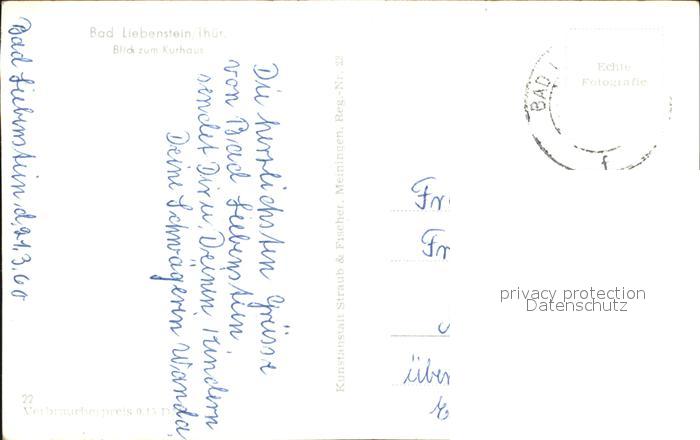 Bad Liebenstein, Thür.
Blick zum Kurhaus
Bad Liebenstein d. 21.3.60
Die herzlichsten Grüsse
von Bad Liebenstein,
sendet Dir u. Deinen Kindern
Deine Schwägerin Wanda
Kunstanstalt Straub & Fischer, Meiningen, Reg.-Nr. 22
22
Verbraucherpreis 0.15
Echte
Fotografie
BAD
f
Fr
Fr
über
privacy protection
Datenschutz